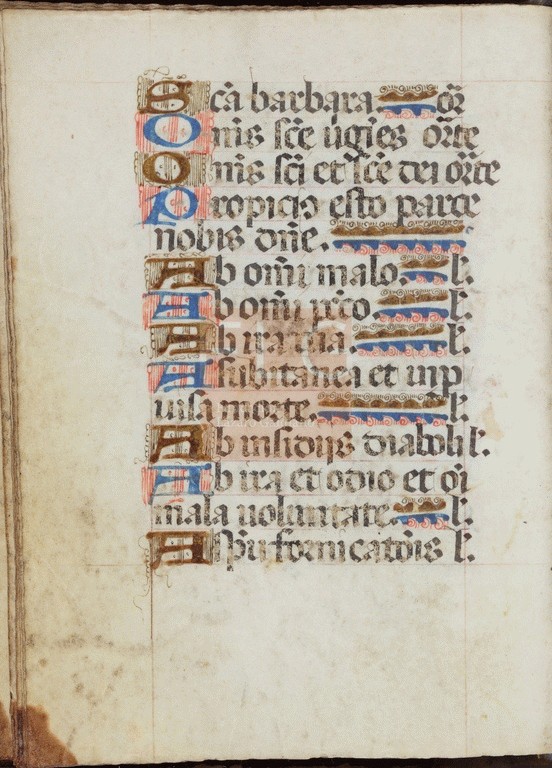 Sc̄a barbara. or̄
Om̄is sc̄e ūgīes or̄te
Om̄is sc̄i et sc̄e dei or̄te
Propicio esto parce
nobis dn̄e.
Ab om̄i malo. l̄.
Ab om̄i pc̄co. l̄.
Ab ira tua. l̄.
A subitanea et inp
uisa morte. l̄.
Ab insidijs diaboli l̄.
Ab ira et odio et oī
mala uoluntate. l̄.
A sp̄u fornicatōis l̄.